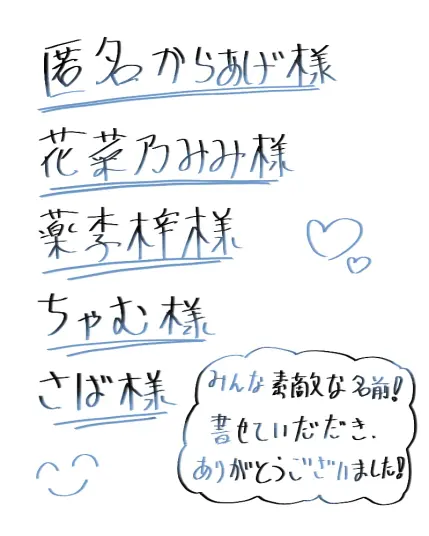 匿名からあげ様
花菜乃みみ様
薬李梓様
ちゃむ様
さば様
みんな素敵な名前!
書せていただき、
ありがとうございました!